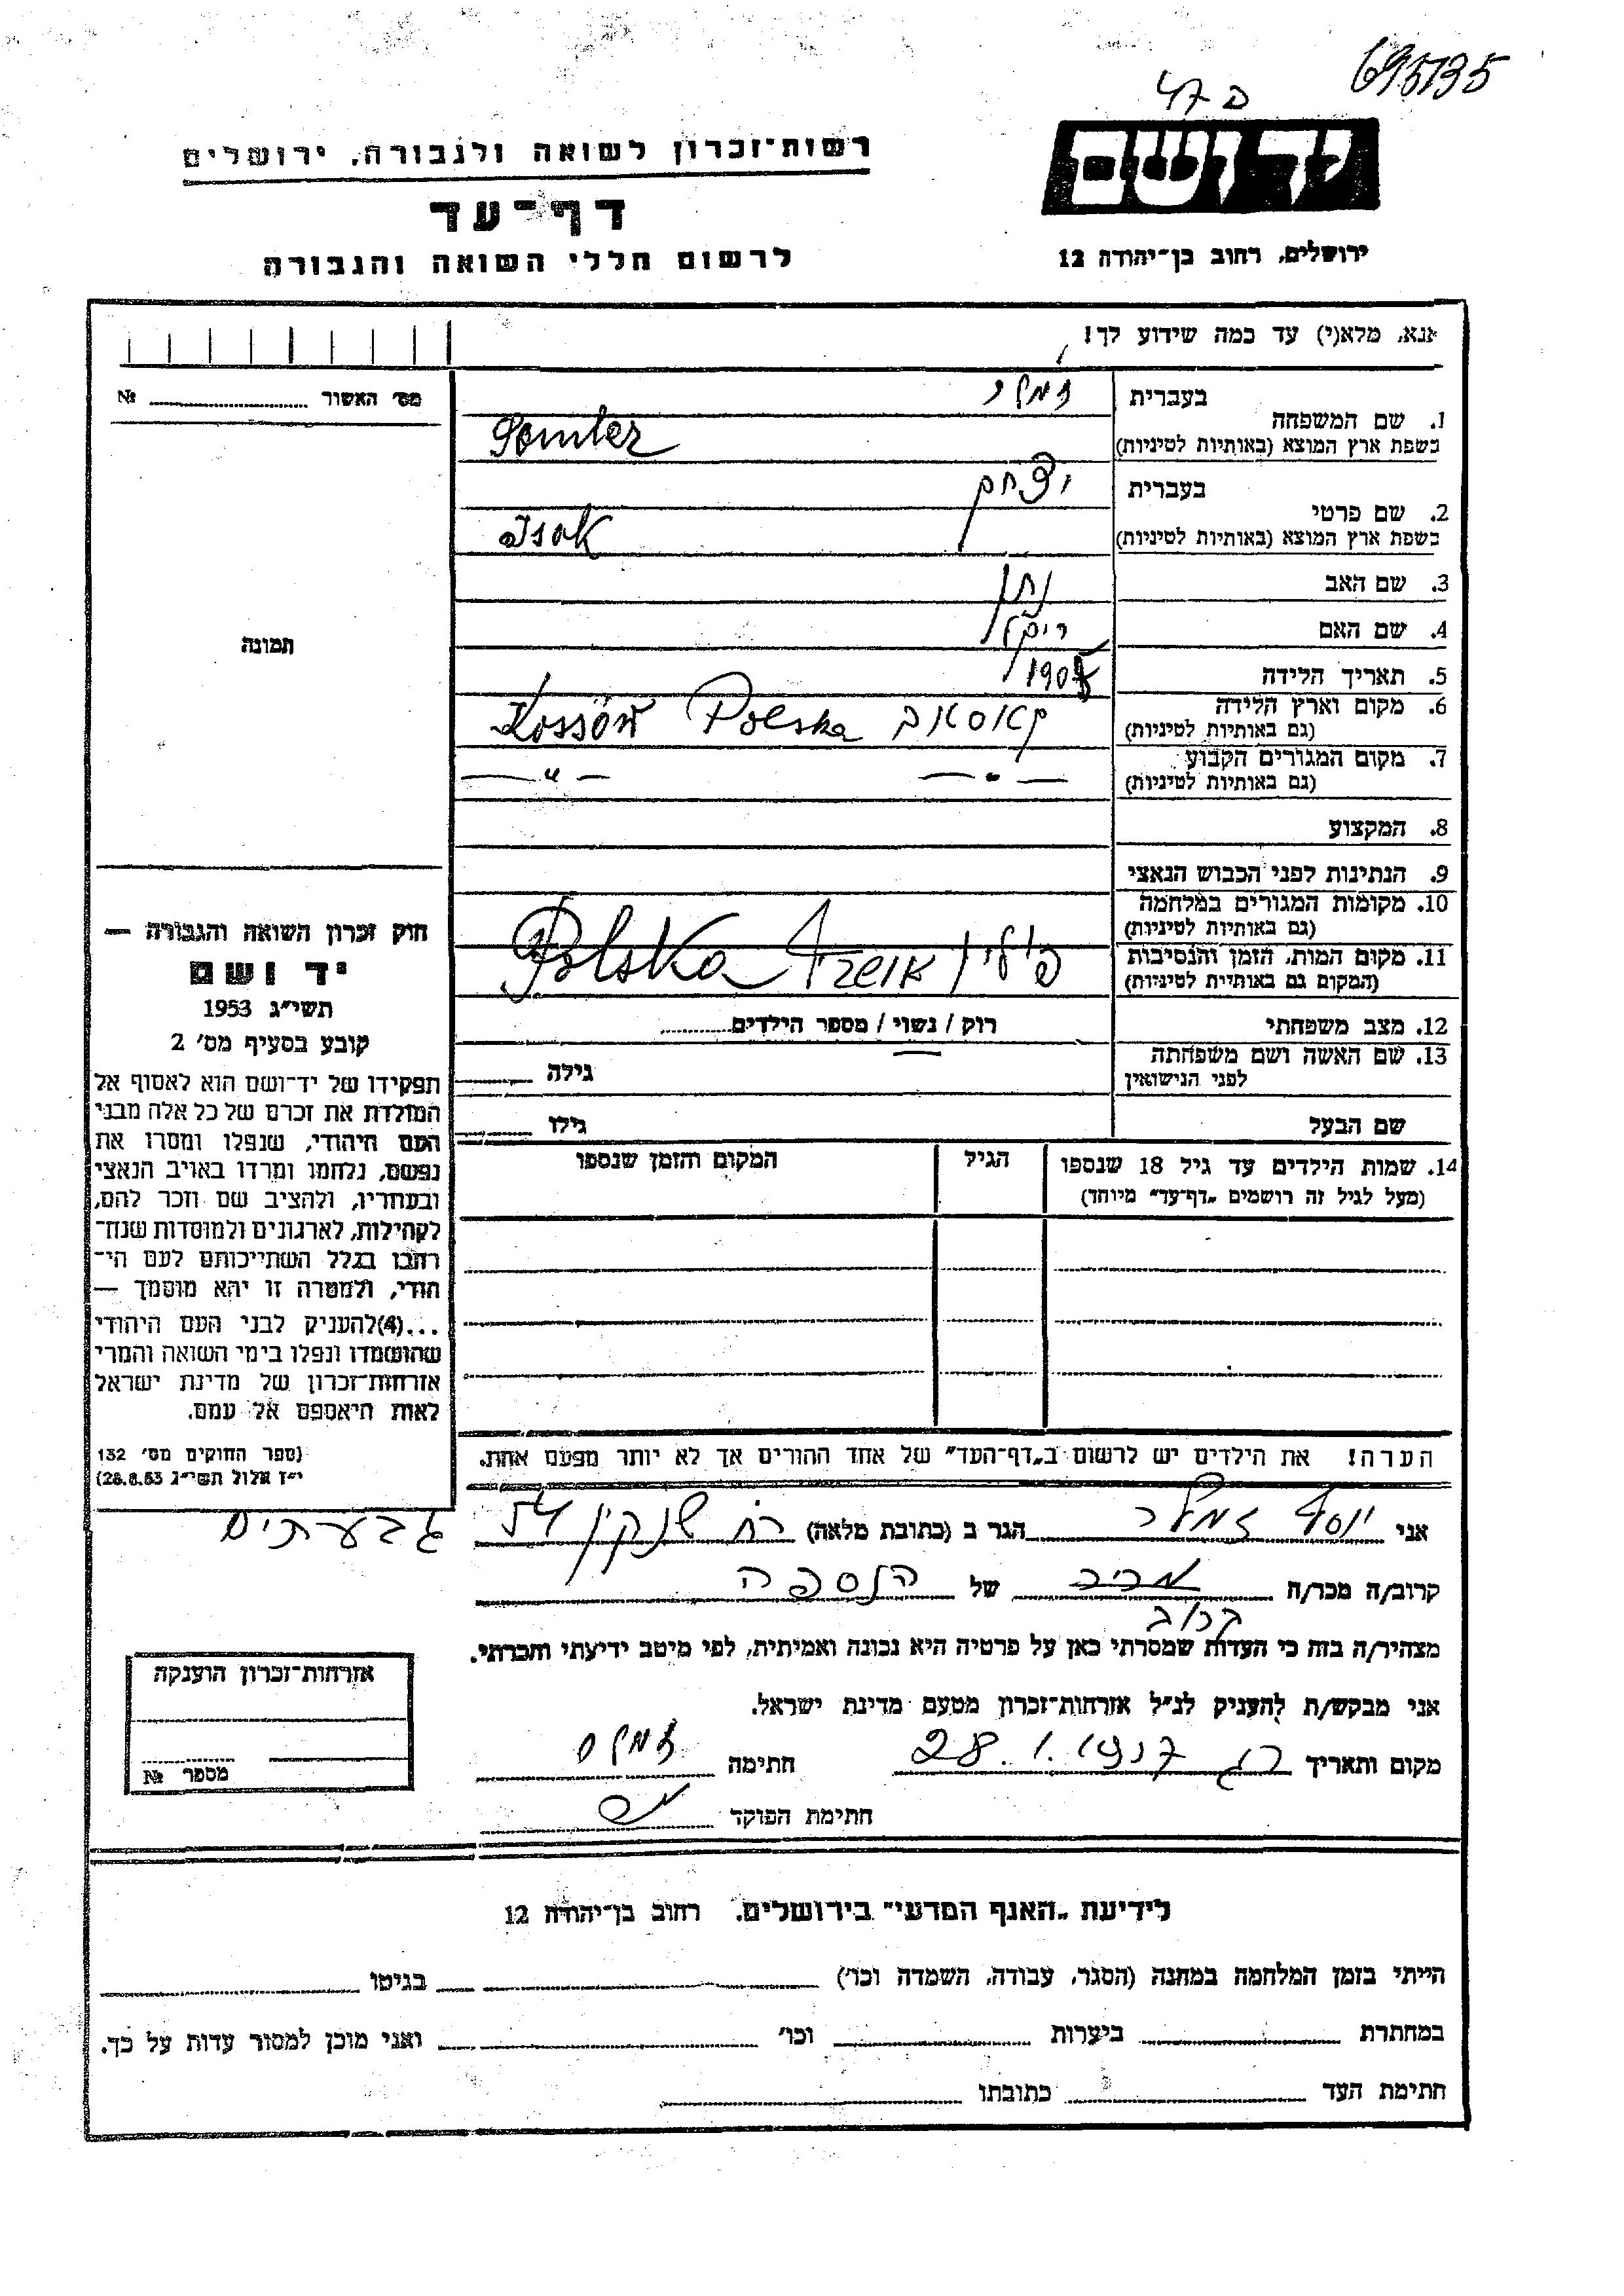 695735
יד ושם
ירושלים, רחוב בן־יהודה 12
רשות־זכרון לשואה ולגבורה, ירושלים
דף־עד
לרשום חללי השואה והגבורה
אנא, מלא(י) עד כמה שידוע לך!
מס׳ האשור № 
1. שם המשפחה בעברית
בשפת ארץ המוצא (באותיות לטיניות) Semler
2. שם פרטי בעברית יצחק
בשפת ארץ המוצא (באותיות לטיניות) Isak
3. שם האב נתן
4. שם האם
5. תאריך הלידה
6. מקום וארץ הלידה (גם באותיות לטיניות) קאסאב Polska Kossów
7. מקום המגורים הקבוע (גם באותיות לטיניות) — " — — " —
8. המקצוע
9. הנתינות לפני הכבוש הנאצי
10. מקומות המגורים במלחמה (גם באותיות לטיניות)
11. מקום המות, הזמן והנסיבות (המקום גם באותיית לטיניות) פולין Polska
12. מצב משפחתי רווק / נשוי / מספר הילדים
13. שם האשה ושם משפחתה לפני הנישואין גילה
שם הבעל גילו
14. שמות הילדים עד גיל 18 שנספו (מעל לגיל זה רושמים „דף־עד" מיוחד) הגיל המקום והזמן שנספו
תמונה
חוק זכרון השואה והגבורה —
יד ושם
תשי״ג 1953
קובע בסעיף מס׳ 2
תפקידו של יד־ושם הוא לאסוף אל
המולדת את זכרם של כל אלה מבני
העם היהודי, שנפלו ומסרו את
נפשם, נלחמו ומרדו באויב הנאצי
ובעוזריו, ולהציב שם וזכר להם,
לקהילות, לארגונים ולמוסדות שנח־
רבו בגלל השתייכותם לעם הי־
הודי, ולמטרה זו יהא מוסמך —
...(4) להעניק לבני העם היהודי
שהושמדו ונפלו בימי השואה והמרי
אזרחות־זכרון של מדינת ישראל
לאות היאספם אל עמם.
(ספר החוקים מס׳ 132
י״ז אלול תשי״ג 28.8.53)
הערה! את הילדים יש לרשום ב„דף־העד" של אחד ההורים אך לא יותר מפעם אחת.
אני יוסף זמלר הגר ב (כתובת מלאה) רח שנקין 54 גבעתיים
קרוב/ה מכר/ה של הנספה
קרוב
מצהיר/ה בזה כי העדות שמסרתי כאן על פרטיה היא נכונה ואמיתית, לפי מיטב ידיעתי והכרתי.
אני מבקש/ת להעניק לנ״ל אזרחות־זכרון מטעם מדינת ישראל.
מקום ותאריך 28.1.1957 חתימה
חתימת הפוקד
אזרחות־זכרון הוענקה
מספר №
לידיעת „האגף המדעי" בירושלים, רחוב בן־יהודה 12
הייתי בזמן המלחמה במחנה (הסגר, עבודה, השמדה וכו׳) בגיטו
במחתרת ביערות וכו׳ ואני מוכן למסור עדות על כך.
חתימת העד כתובתו